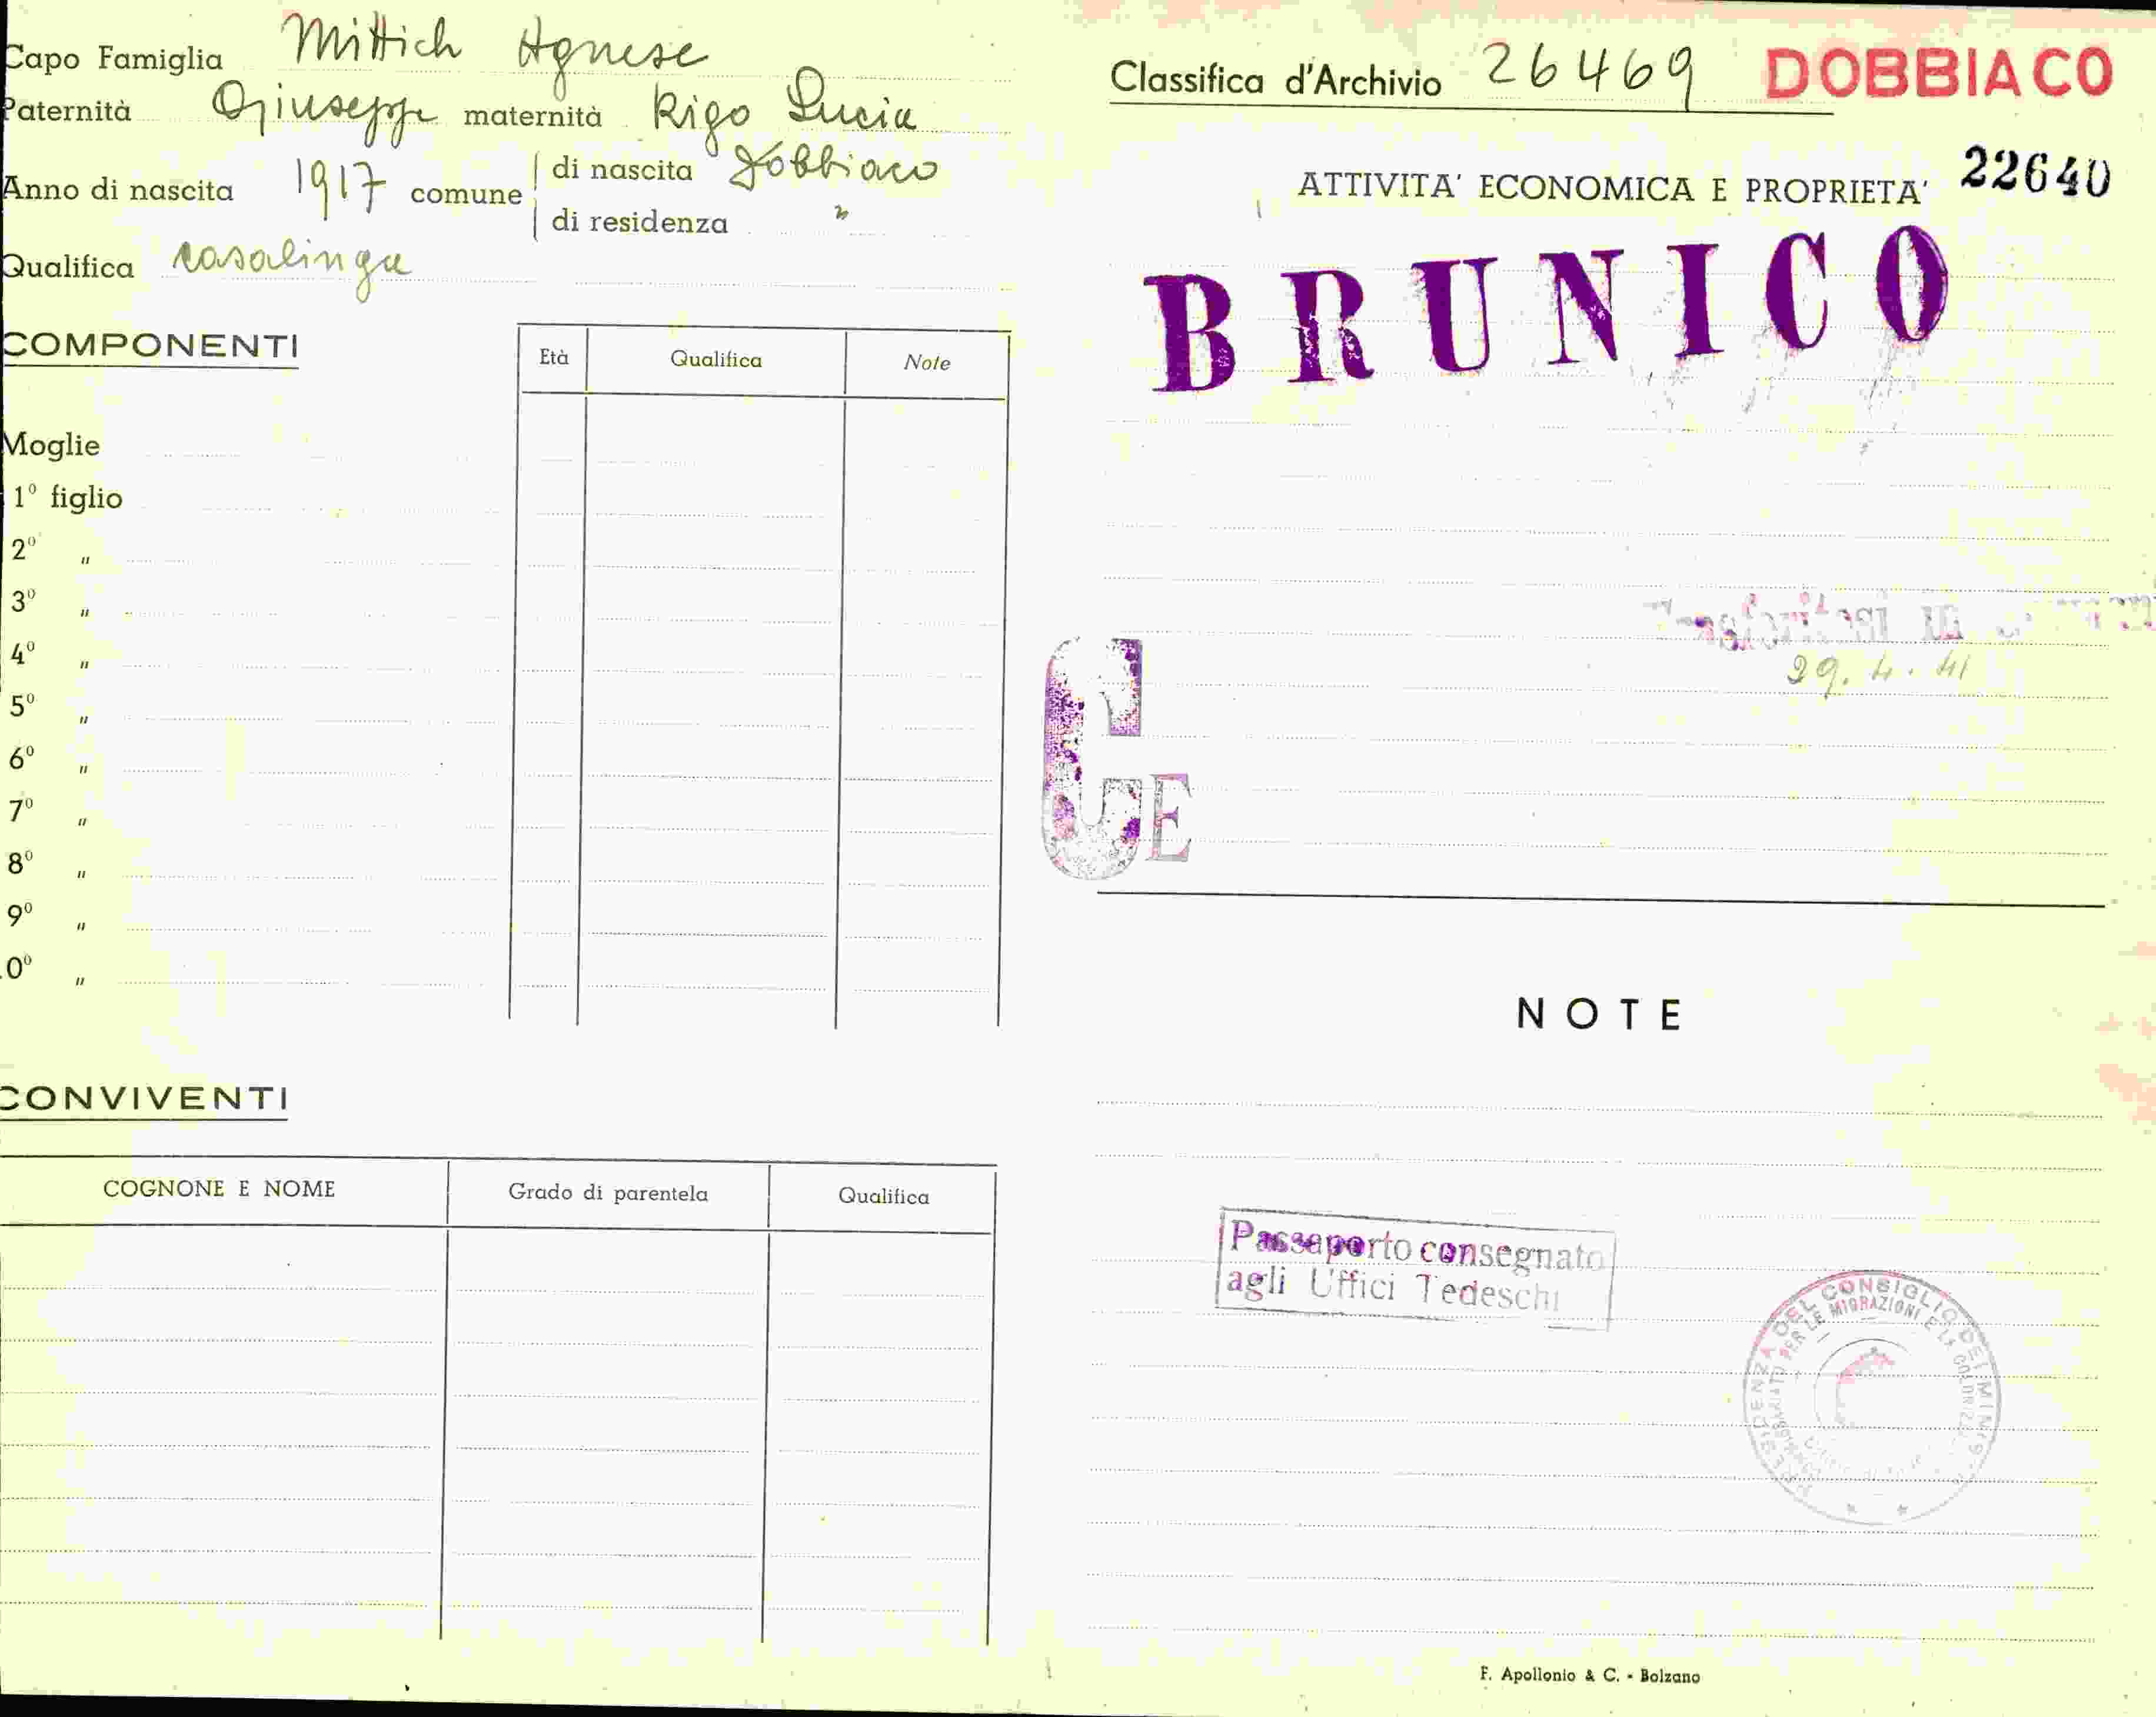 Capo Famiglia Mittich Agnese
Paternità Giuseppe maternità Rigo Lucia
Anno di nascita 1917 comune di nascita Dobbiaco
di residenza "
Qualifica casalinga
COMPONENTI
Età Qualifica Note
Moglie
1º figlio
2º "
3º "
4º "
5º "
6º "
7º "
8º "
9º "
0º "
CONVIVENTI
COGNONE E NOME Grado di parentela Qualifica
Classifica d'Archivio 26469 DOBBIACO
ATTIVITA' ECONOMICA E PROPRIETA' 22640
BRUNICO
29.4.41
CE
NOTE
Passaporto consegnato
agli Uffici Tedeschi
PRESIDENZA DEL CONSIGLIO DEI MINIS
PER LE MIGRAZIONI E LA
F. Apollonio & C. - Bolzano